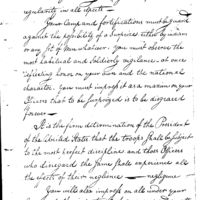 regularity in all epochs
Your Camp and fortifications must be guarded
against the possibility of a surprise either by indians
or any set of men whatever. You must observe the
most habitual and Soldierly vigilance, at once
reflecting honor on your own and the national
character. You must impress it as a maxim on your
Officers that to be surprized is to be disgraced
forever —
It is the firm determination of the President
of the United States that the troops shall be subject
to the most perfect discipline and that Officers
who disregard the same shall experience all
the effects of their negligence — negligence
You will also impress on all under your